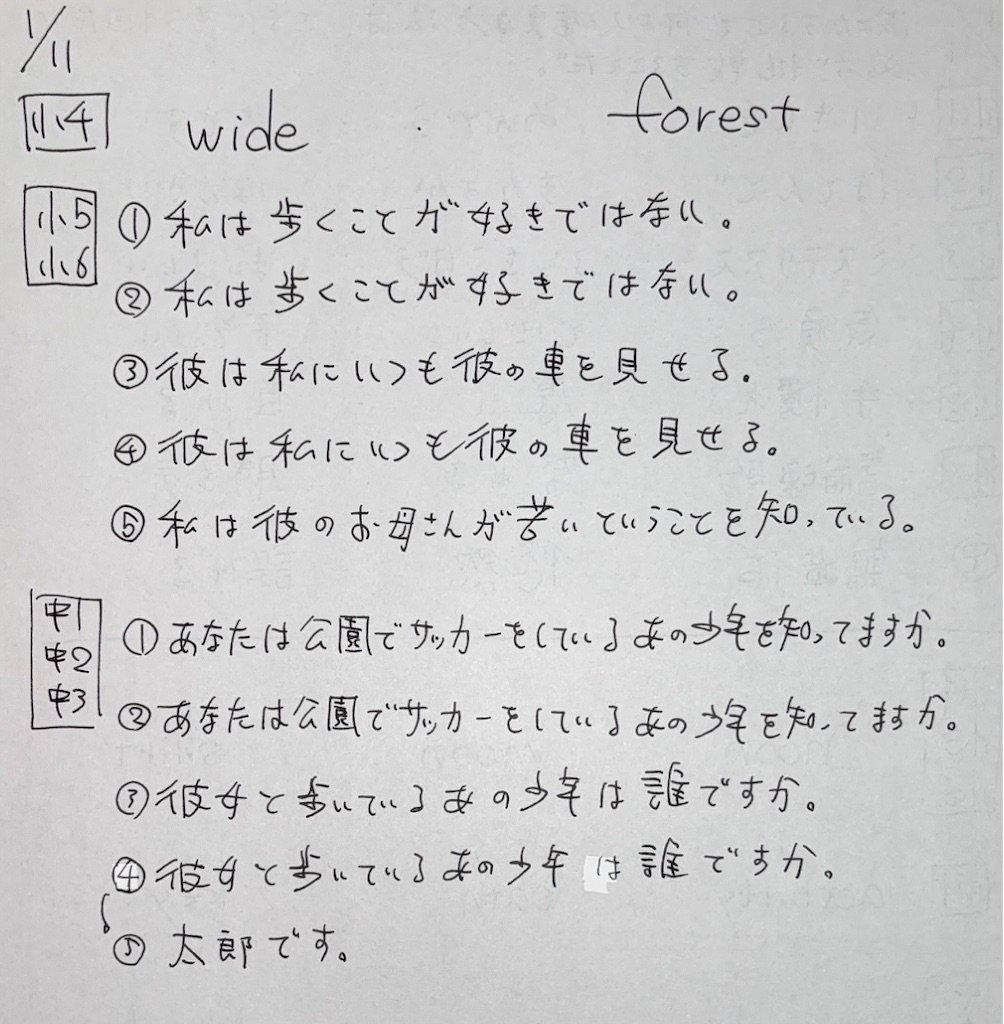 1/11
小4 wide forest
小5 ① 私は歩くことが好きではない。
小6
② 私は歩くことが好きではない。
③ 彼は私にいつも彼の車を見せる。
④ 彼は私にいつも彼の車を見せる。
⑤ 私は彼のお母さんが苦いということを知っている。
中1 ① あなたは公園でサッカーをしているあの少年を知ってますか。
中2
中3
② あなたは公園でサッカーをしているあの少年を知ってますか。
③ 彼女と歩いているあの少年は誰ですか。
④ 彼女と歩いているあの少年は誰ですか。
⑤ 太郎です。